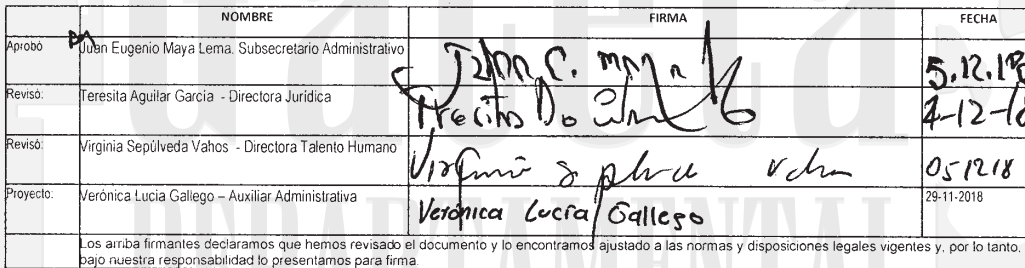 NOMBRE FIRMA FECHA
Aprobó Juan Eugenio Maya Lema. Subsecretario Administrativo 5.12.18
Revisó: Teresita Aguilar García - Directora Jurídica
Revisó: Virginia Sepúlveda Vahos - Directora Talento Humano 051218
Proyecto: Verónica Lucia Gallego – Auxiliar Administrativa Verónica Lucía Gallego 29-11-2018
Los arriba firmantes declaramos que hemos revisado el documento y lo encontramos ajustado a las normas y disposiciones legales vigentes y, por lo tanto,
bajo nuestra responsabilidad lo presentamos para firma.